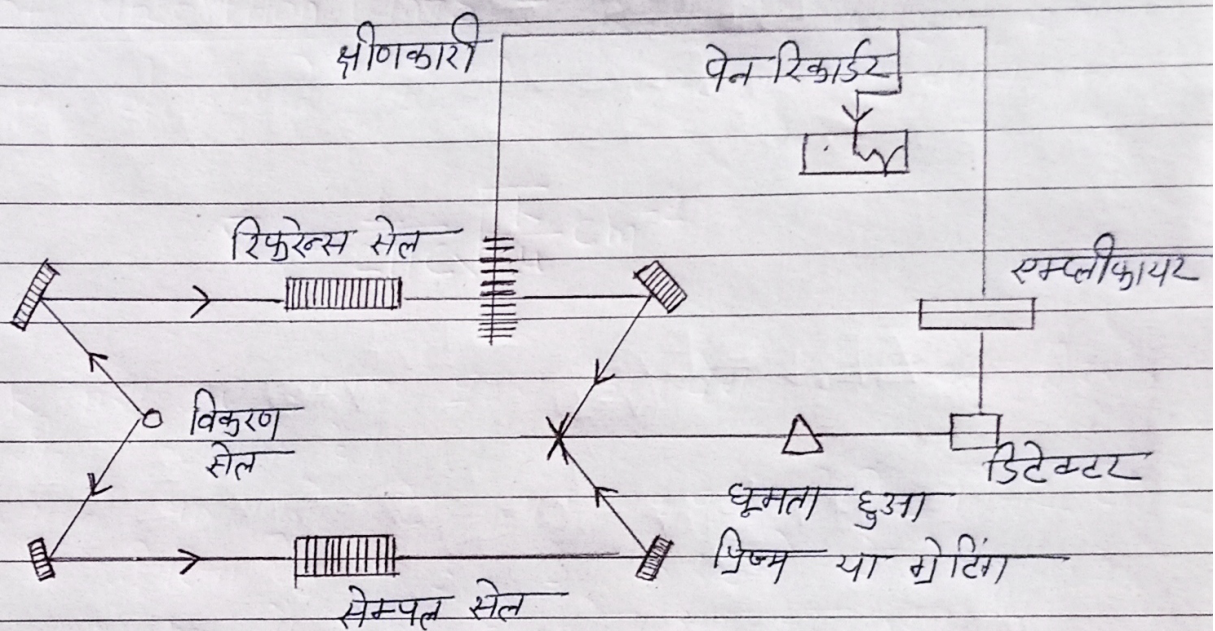 क्षीणकारी
पेन रिकार्डर
रिफरेन्स सेल
एम्प्लीफायर
विकरण
सेल
डिटेक्टर
घूमता हुआ
प्रिज्म या ग्रेटिंग
सेम्पल सेल